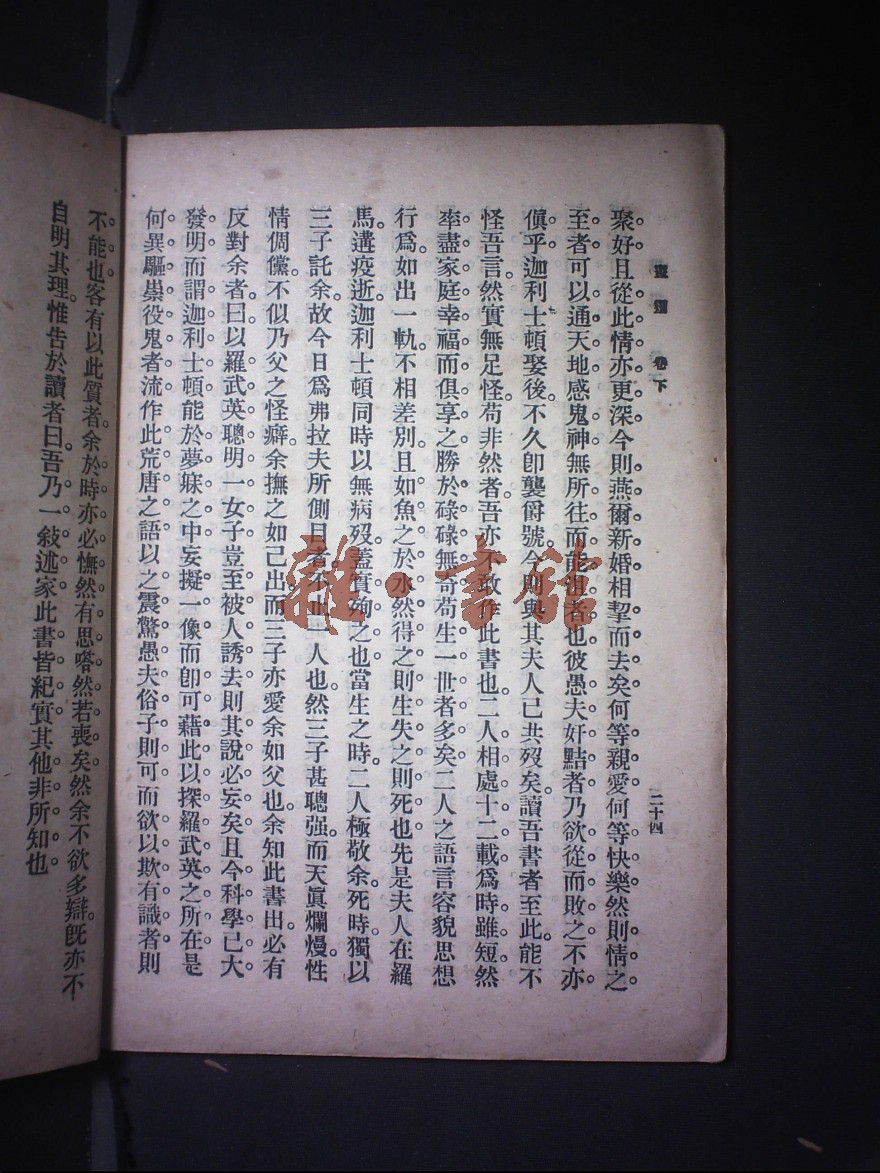 卷下
二十四
聚好且從此情亦更深今則燕爾新婚相挈而去矣何等親愛何等快樂然則情之
至者可以通天地感鬼神無所往而能阻者也彼愚夫奸黠者乃欲從而敗之不亦
傎乎迦利士頓娶後不久卽襲爵號今則與其夫人已共歿矣讀吾書者至此能不
怪吾言然實無足怪苟非然者吾亦不敢作此書也二人相處十二載爲時雖短然
率盡家庭幸福而俱享之勝於碌碌無奇苟生一世者多矣二人之語言容貌思想
行爲如出一軌不相差別且如魚之於水然得之則生失之則死也先是夫人在羅
馬遘疫逝迦利士頓同時以無病歿蓋實殉之也當生之時二人極敬余死時獨以
三子託余故今日爲弗拉夫所側目者不止一人也然三子甚聰强而天眞爛熳性
情倜儻不似乃父之怪癖余撫之如己出而三子亦愛余如父也余知此書出必有
反對余者曰以羅武英聰明一女子豈至被人誘去則其說必妄矣且今科學已大
發明而謂迦利士頓能於夢寐之中妄擬一像而卽可藉此以探羅武英之所在是
何異驅祟役鬼者流作此荒唐之語以之震驚愚夫俗子則可而欲以欺有識者則
不能也客有以此質者余於時亦必憮然有思嗒然若喪矣然余不欲多辯旣亦不
自明其理惟告於讀者曰吾乃一敍述家此書皆紀實其他非所知也
雜·書館